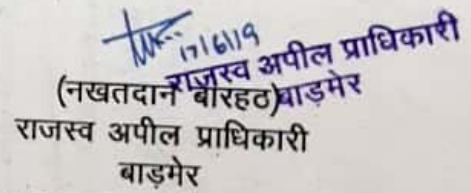 17/6/19
राजस्व अपील प्राधिकारी
बाड़मेर
(नखतदान बारहठ)
राजस्व अपील प्राधिकारी
बाड़मेर